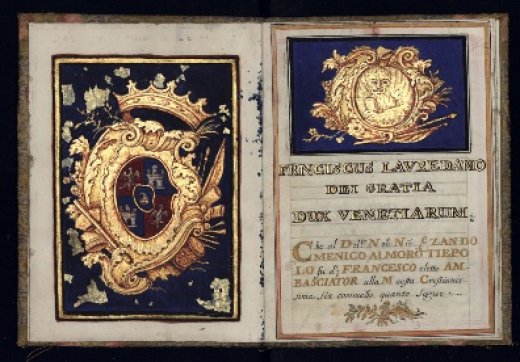 FRNCISCUS LAVREDANO
DEI GRATIA
DUX VENETIARUM,
Che al Dil.N.ob.Nīō. ZANDO
MENICO ALMORÒ TIEPO
LO fu di FRANCESCO eletto AM
BASCIATOR alla M. Cristianis
sima, sia quanto segue